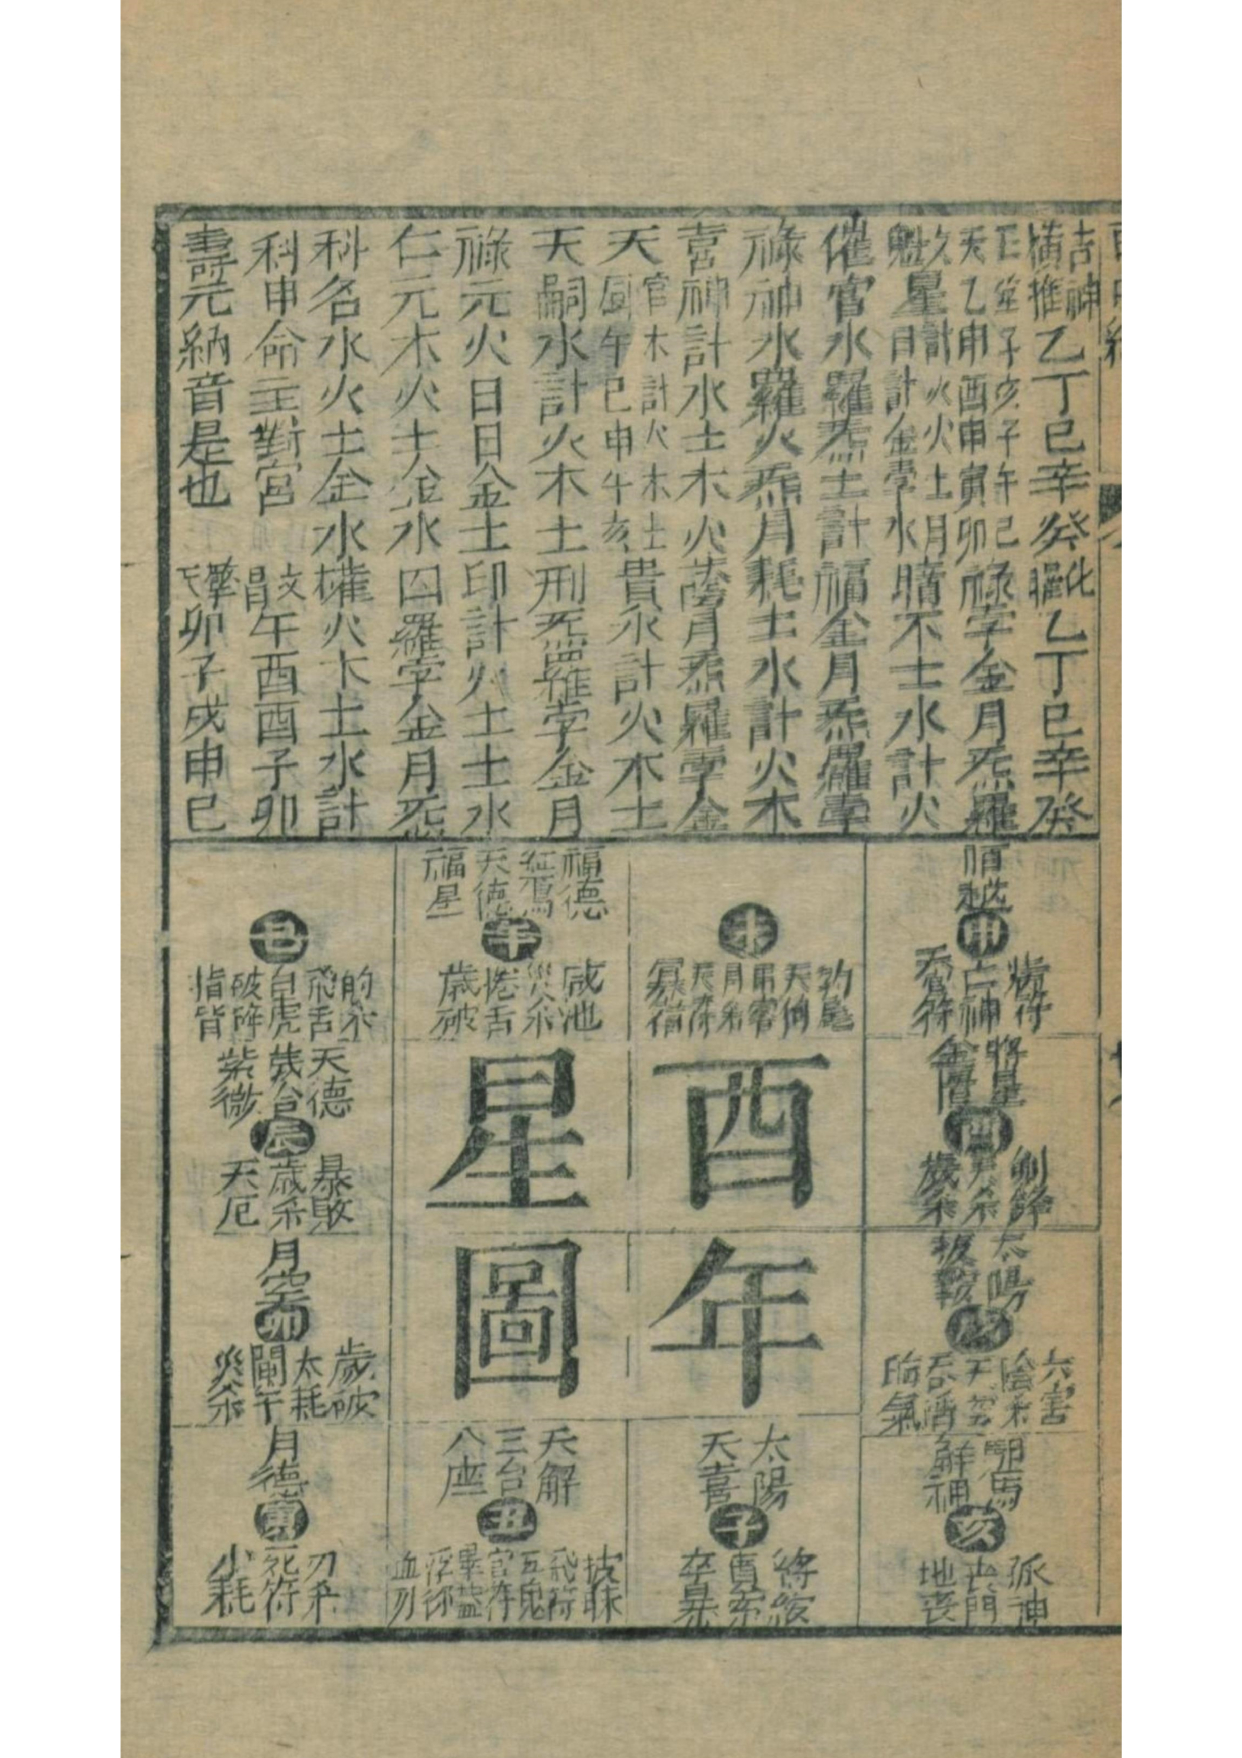 吉神橫推乙丁巳辛癸此曜乙丁巳辛癸
玉堂子亥子午巳
天乙申酉申寅卯祿孛金月炁羅
文星計火火土月
魁星月計金孛水暗木土水計火
催官水羅炁土計福金月炁羅孛
祿神水羅火炁月耗土水計火木
喜神計水土木火蔭月炁羅孛金
天官木計火木土
天國午巳申午亥貴水計火木土
天嗣水計火木土刑炁羅孛金月
祿元火日日金土印計火土土水
仁元木火土金水囚羅孛金月炁
科名水火土金水權火木土水計
科甲命主對宮文昌午酉酉子卯
壽元納音是也 卯子戌申巳
酉年星圖
申
酉
將星
金匱
劍鋒
歲杀
戌
太陽
六害
陰杀
晦氣
亥
馹馬
解神
孤神
地喪
子
太陽
天喜
貫索
卒暴
丑
天解
三台
八座
披麻
飛符
五鬼
官符
浮沉
血刃
寅
月德
死符
小耗
卯
月空
歲破
太耗
闌干
災杀
辰
天德
歲合
紫微
暴敗
歲杀
天厄
巳
的杀
飛舌
白虎
破碎
指背
午
福德
紅鸞
天德
福星
咸池
災杀
捲舌
歲破
未
天狗
吊客
月杀